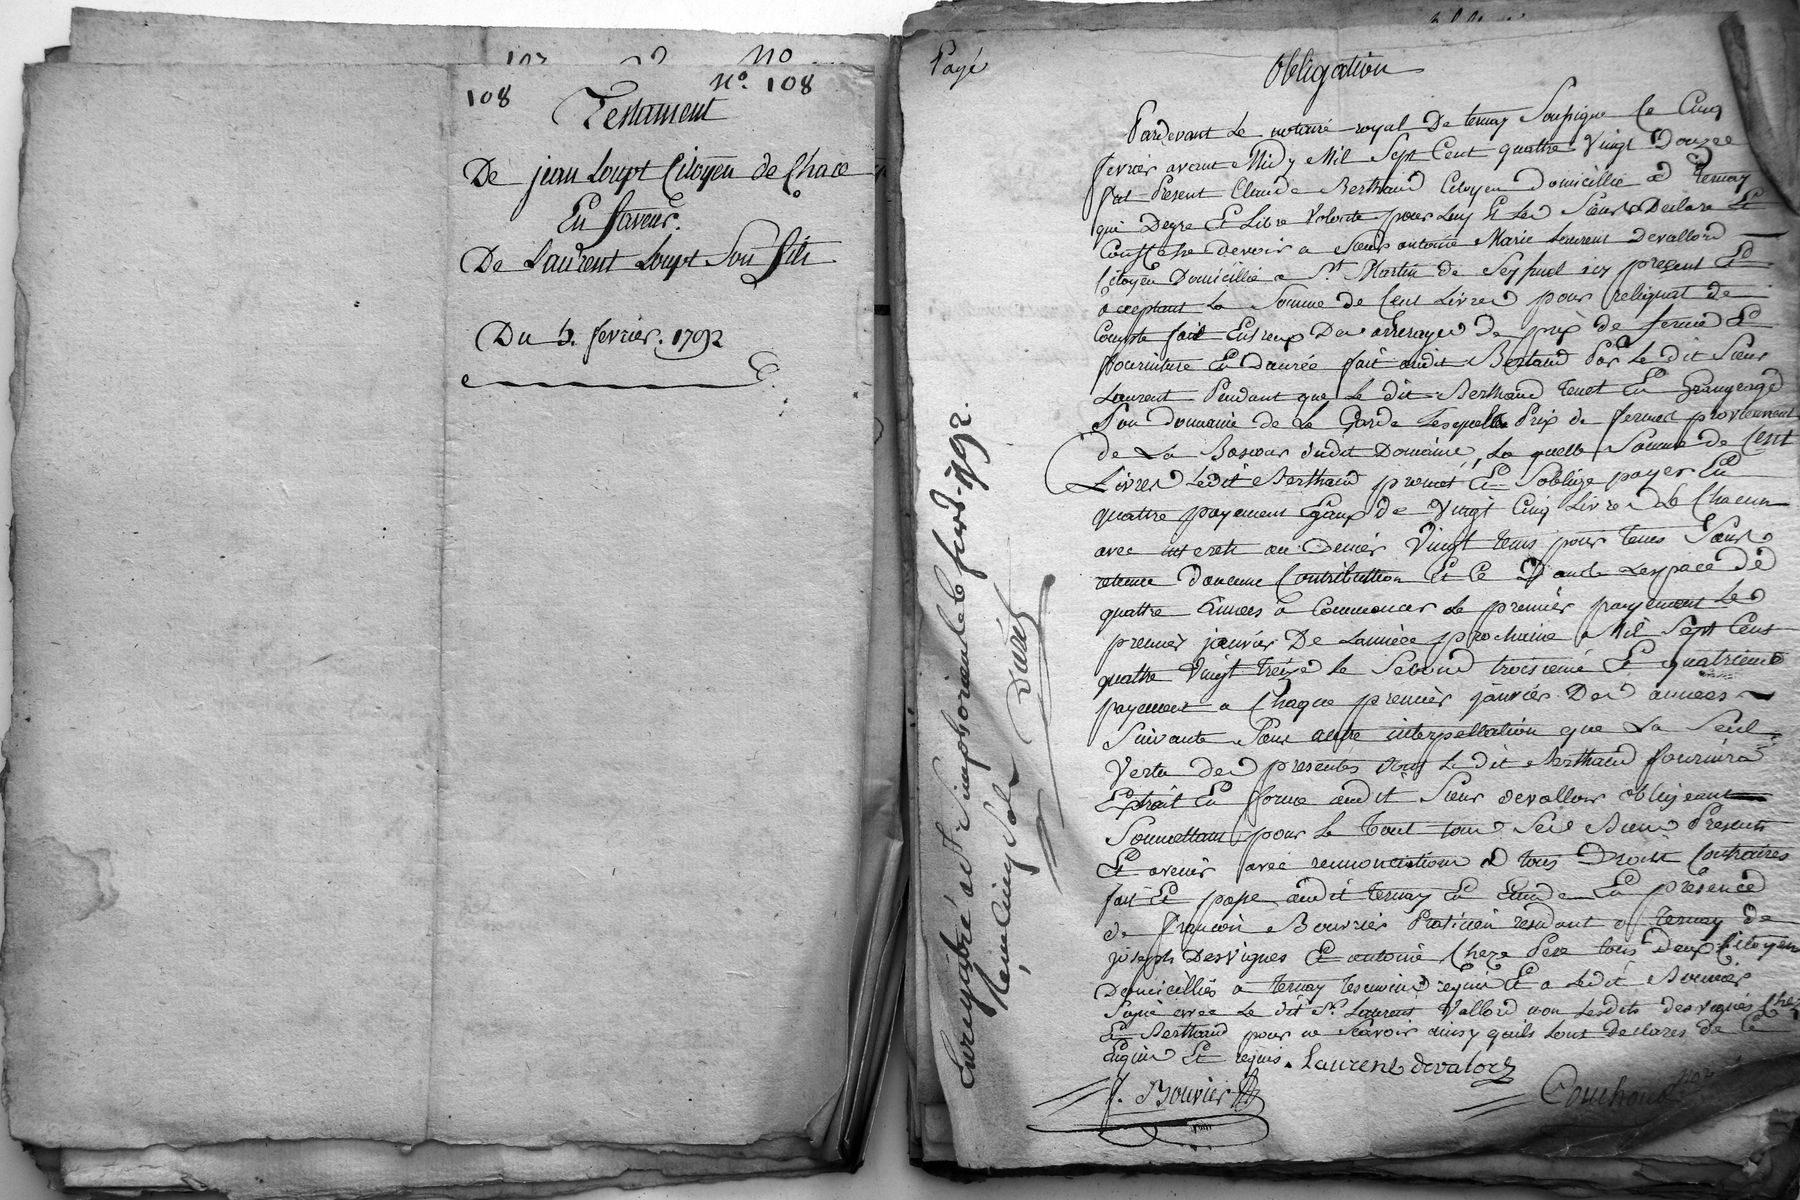 107 No
108 No. 108
Testament
De jean Loupt Citoyen de Chace
En faveur.
De Laurent Loupt Son fils
Du 5. fevrier. 1792
Payé
Obligation
Pardevant Le notaire royal De ternay Soussigne Le Cinq
fevrier avant Midy Mil Sept Cent quatre Vingt Douzee
fut Present Claude Berthaud Citoyen Domicillie a Ternay
qui Degre Et Libre Volonte pour Luy Et Les Sieurs Declare Et
Confesse devoir a Sieur antoine Marie Laurent Devallord
Citoyen Domicillie a St. Martin de Seyssuel icy present Et
acceptant La Somme de Cent Livres pour reliquat de
Compte fait Entreux Des arrerages de prix de ferme Et
fourniture En Danrée fait audit Bertaud Par Le dit Sieur
Laurent Pendant que Le dit Berthaud tenet En Grangeage
Son domaine de La Garde Lesquelle Prix de fermes proviennent
de La dudit Domaine, La quelle Somme de Cent
Livres Ledit Berthaud promet Et Soblige payer En
quattre payement Egaux De Vingt Cinq Livres Le Chacun
avec interets au Denier Vingt tems pour tems Sans
retenue daucune Contribution Et Ce Dans Lespace de
quattre Années a Commencer Le premier payement Le
premier janvier De Lannéee prochaine Mil Sept Cent
quattre Vingt treize Le Second troisieme Et quatrieme
payement a Chaque premier janvier Des années
Suivante Sans autre interpellation que La Seul
Vertu des presentes dont Le dit Berthaud fournira
Extrait En forme audit Sieur devallors obligeant
Soumettant pour Le Tout tous Ses Biens Presents
Et avenir avec renonciation a tous Droits Contraires
fait Et passe audit Ternay En Etude En presence
de françois Bouvier Praticien residant a Ternay de
joseph Desvignes Et antoine Cheze Pere tous Deux Citoyens
Domicilliés a Ternay temoins requis Et a Ledit Bouvier
Signé avec Le dit Sr. Laurent Vallord non Lesdits desvignes Chez
Et Berthaud pour ne Scavoir ainsy quils Lont Declares de Ce
Enquis Et requis. Laurent devalors
f. Bouvier
Couchoud nore
Enregistré a St Simphorien le 6 fevr. 1792.
Reçu Cinq Sols